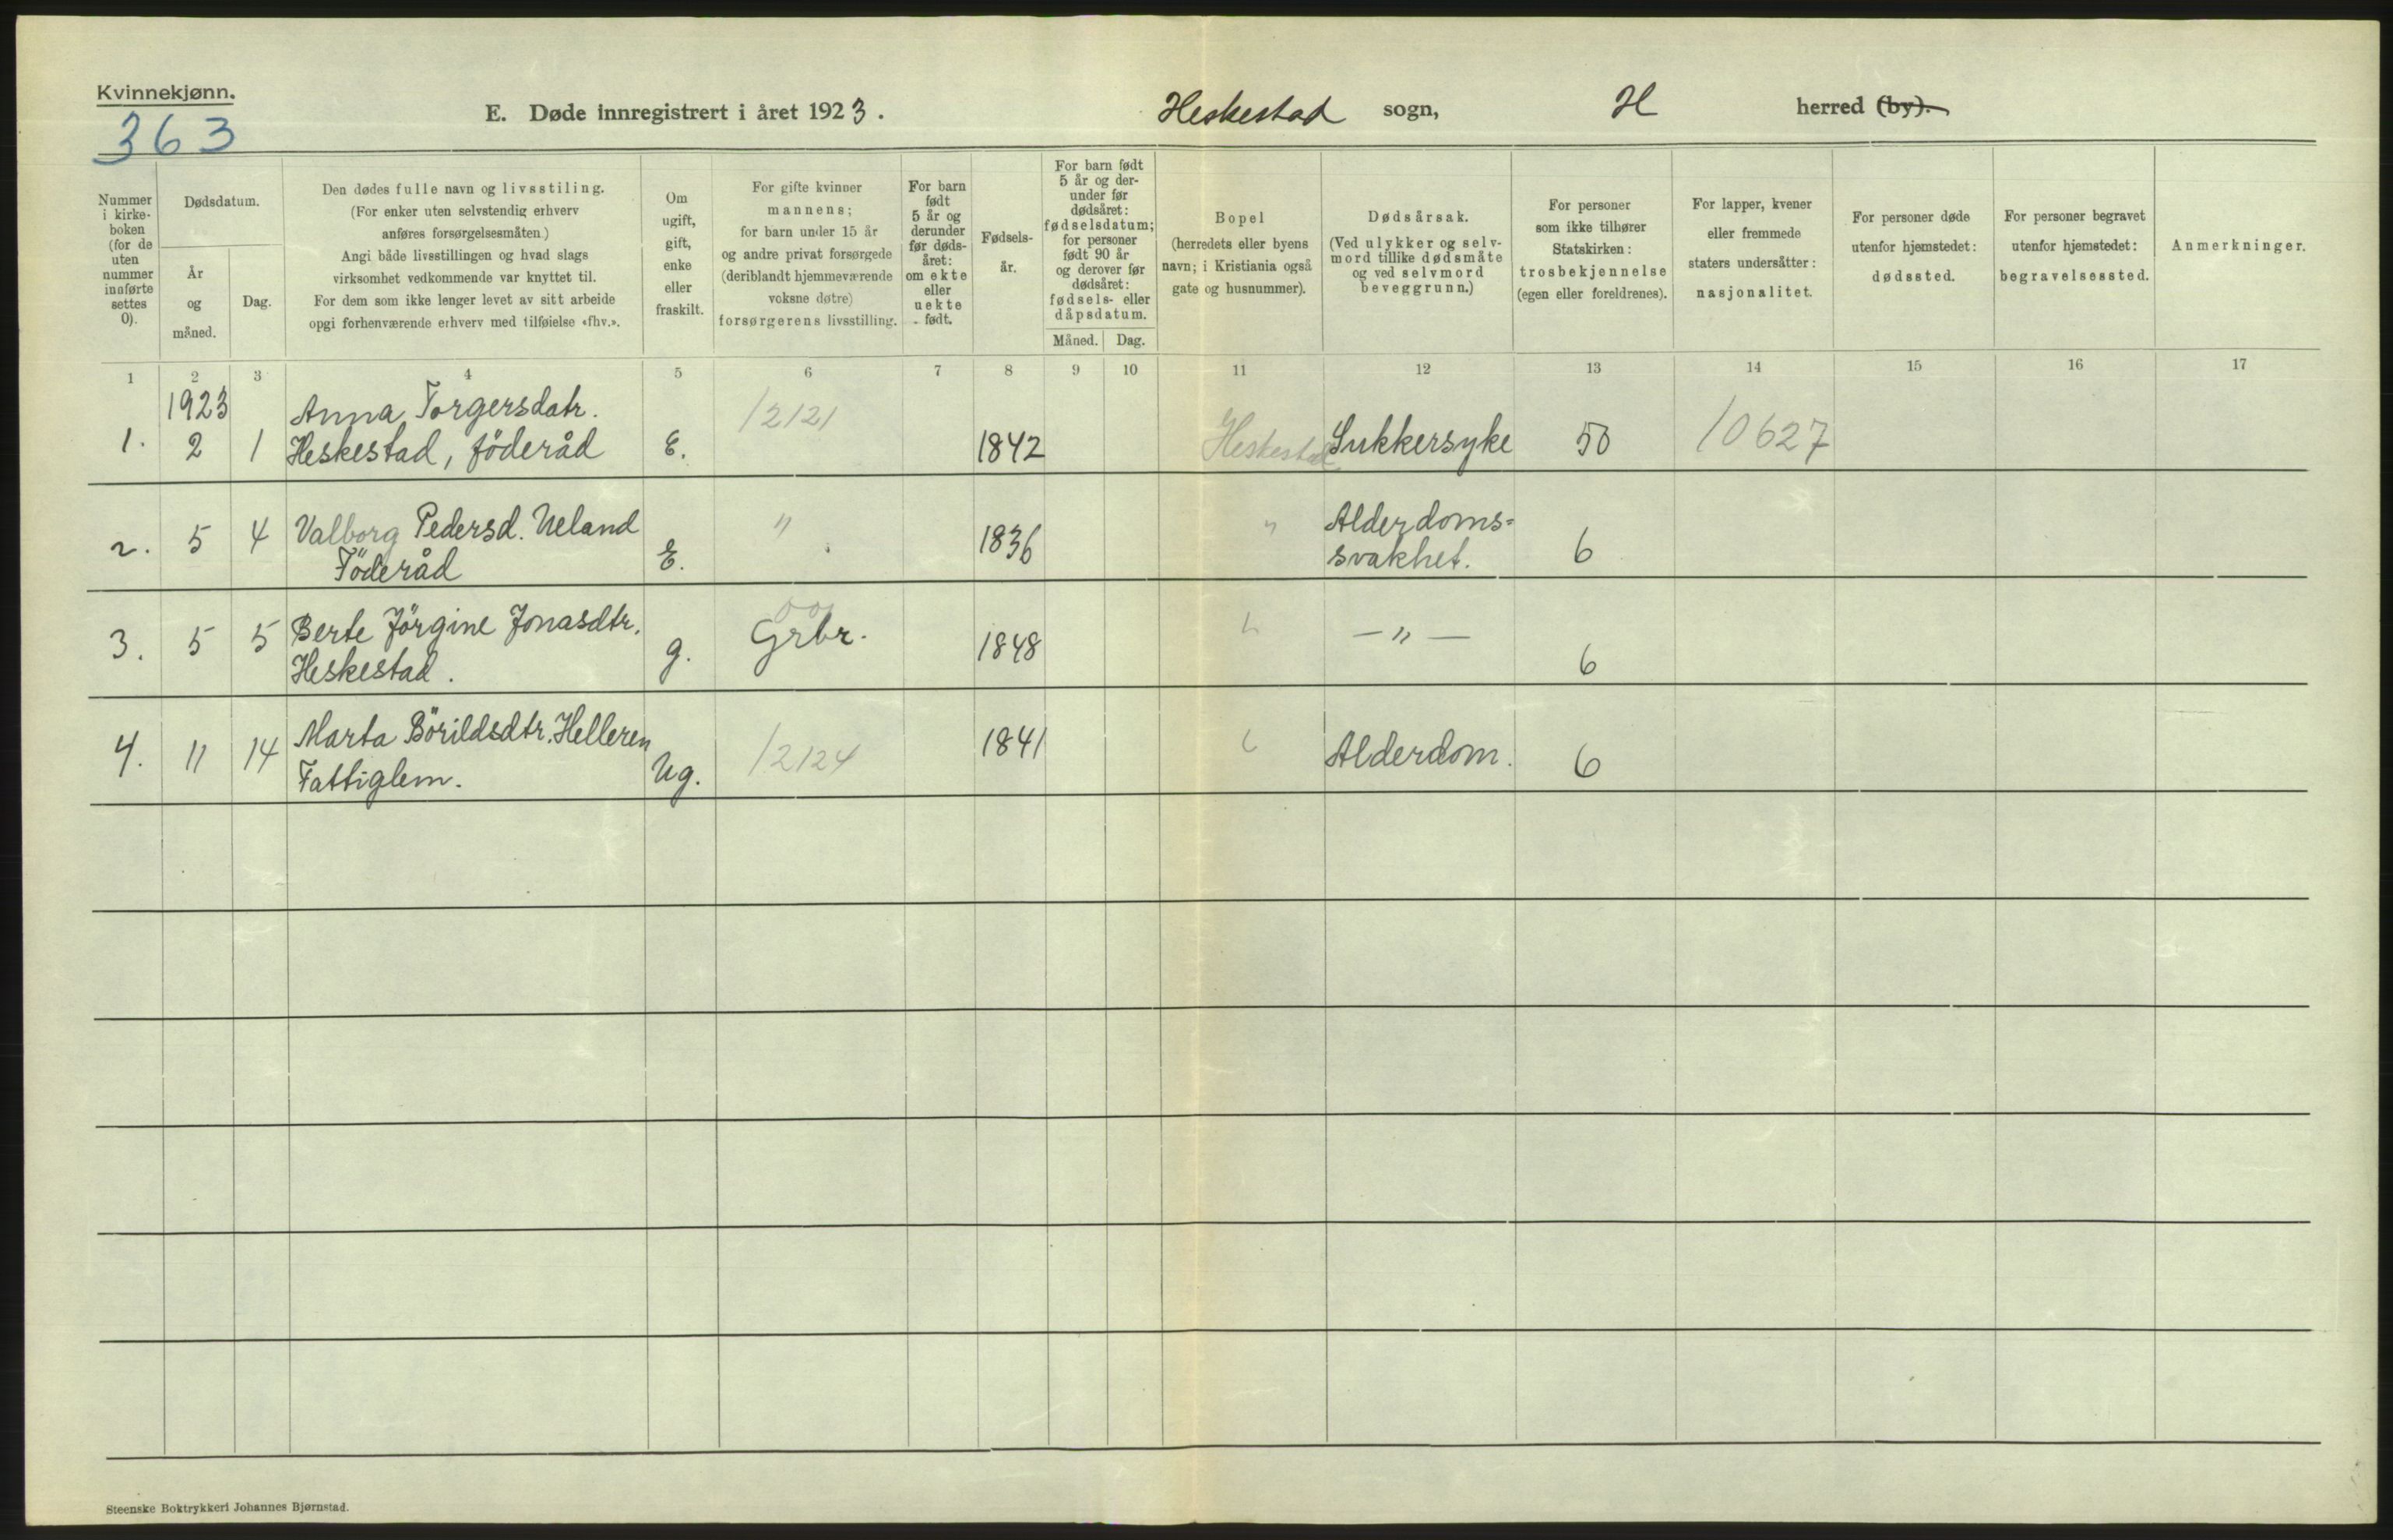 Kvinnekjønn.
363
E. Døde innregistrert i året 1923.
Heskestad sogn, H herred (by).
Nummer i kirke-boken (for de uten nummer innførte settes 0).
Dødsdatum.
År og måned.
Dag.
Den dødes fulle navn og livsstiling.
(For enker uten selvstendig erhverv
anføres forsørgelsesmåten.)
Angi både livsstillingen og hvad slags
virksomhet vedkommende var knyttet til.
For dem som ikke lenger levet av sitt arbeide
opgi forhenværende erhverv med tilføielse «fhv.».
Om
ugift,
gift,
enke
eller
fraskilt.
For gifte kvinner
mannens;
for barn under 15 år
og andre privat forsørgede
(deriblandt hjemmeværende
voksne døtre)
forsørgerens livsstilling.
For barn
født
5 år og
derunder
før døds-
året:
om ekte
eller
uekte
født.
Fødsels-
år.
For barn født
5 år og der-
under før
dødsåret:
fødselsdatum;
for personer
født 90 år
og derover før
dødsåret:
fødsels- eller
dåpsdatum.
Måned. Dag.
Bopel
(herredets eller byens
navn; i Kristiania også
gate og husnummer).
Dødsårsak.
(Ved ulykker og selv-
mord tillike dødsmåte
og ved selvmord
beveggrunn.)
For personer
som ikke tilhører
Statskirken:
trosbekjennelse
(egen eller foreldrenes).
For lapper, kvener
eller fremmede
staters undersåtter:
nasjonalitet.
For personer døde
utenfor hjemstedet:
dødssted.
For personer begravet
utenfor hjemstedet:
begravelsessted.
Anmerkninger.
1 2 3 4 5 6 7 8 9 10 11 12 13 14 15 16 17
1923 Anna Torgersdatr. 12121
1. 2 1 Heskestad, föderåd E. 1842 Heskestad Sukkersyke 50 10627
Valborg Pedersd. Ueland " " Alderdoms=
2. 5 4 Föderåd E. 1836 svakhet. 6
Berte Jörgine Jonasdtr. Grbr.
3. 5 5 Heskestad. g. 1848 " — " — 6
Marta Börildsdtr. Helleren
4. 11 14 Fattiglem. Ug. 12124 1841 " Alderdom. 6
Steenske Boktrykkeri Johannes Bjørnstad.